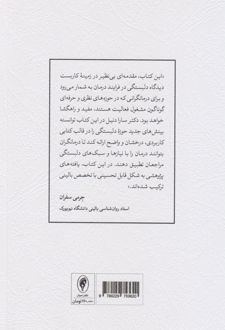 «این کتاب، مقدمه‌ای بی‌نظیر در زمینهٔ کاربست
دیدگاه دلبستگی در فرایند درمان به شمار می‌رود
و برای درمانگرانی که در حوزه‌های نظری و حرفه‌ای
گوناگون مشغول فعالیت هستند، مفید و راهگشا
خواهد بود. دکتر سارا دنیل در این کتاب توانسته
بینش‌های جدید حوزهٔ دلبستگی را در قالب کتابی
کاربردی، درخشان و واضح ارائه کند تا درمانگران
بتوانند درمان را با نیازها و سبک‌های دلبستگی
مراجعان تطبیق دهند. در این کتاب، یافته‌های
پژوهشی به شکل قابل تحسینی با تخصص بالینی
ترکیب شده‌اند.»
جرمی سفران
استاد روان‌شناسی بالینی دانشگاه نیویورک
تومان